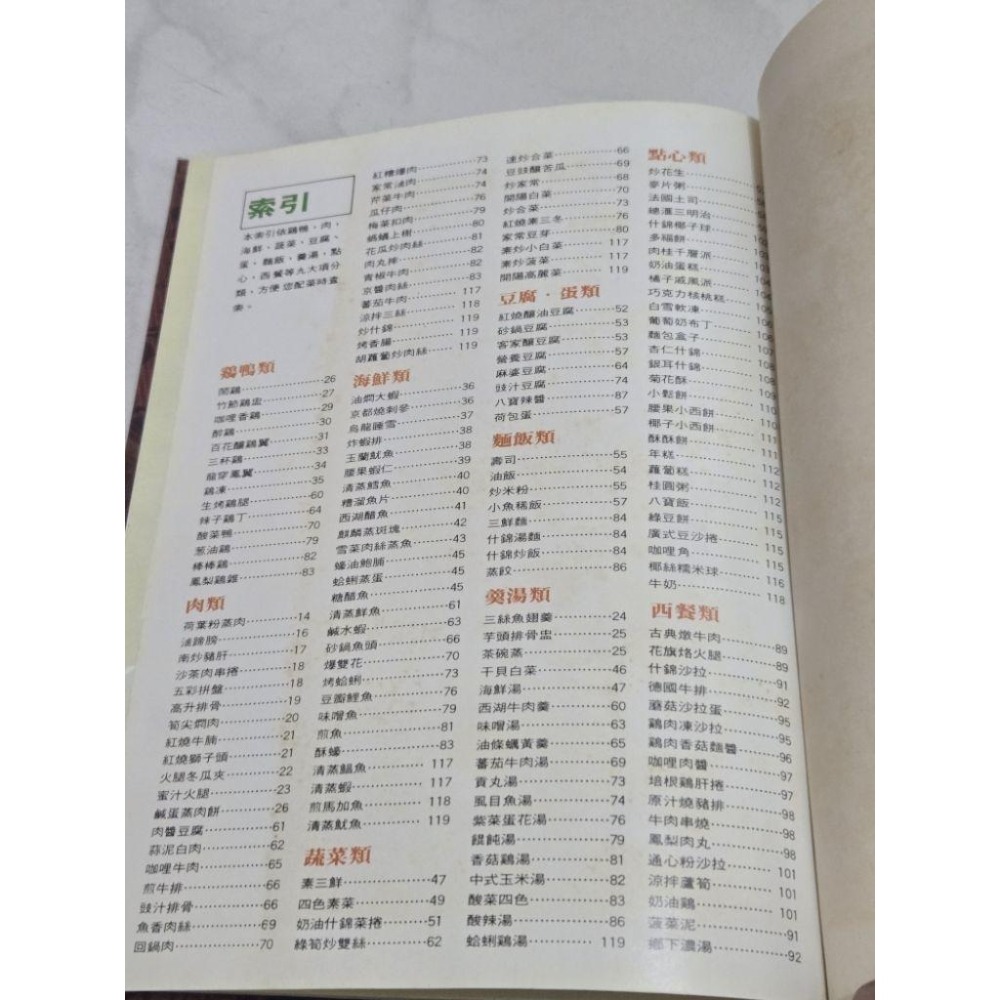 索引
本索引依鷄鴨、肉、
海鮮、蔬菜、豆腐、
蛋、麵飯、羹湯、點
心、西餐等九大項分
類、方便您配菜時查
索。
鷄鴨類
26
竹節鷄盅 27
咖哩香鷄 29
醉鷄 30
百花釀鷄翼 31
三杯鷄 33
龍穿鳳翼 34
鷄凍 35
生烤鷄腿 60
辣子鷄丁 64
酸菜鴨 70
葱油鷄 79
棒棒鷄 82
鳳梨鷄 83
肉類
荷葉粉蒸肉 14
16
南炒豬肝 17
沙茶肉串捲 18
五彩拼盤 18
高升排骨 19
筍尖燜肉 20
紅燒牛腩 21
紅燒獅子頭 21
火腿冬瓜夾 22
蜜汁火腿 23
鹹蛋蒸肉餅 26
肉醬豆腐 61
蒜泥白肉 62
咖哩牛肉 65
煎牛排 66
豉汁排骨 66
魚香肉絲 69
回鍋肉 70
紅糟爆肉 73
家常滷肉 74
芹菜牛肉 74
瓜仔肉 76
梅菜扣肉 79
螞蟻上樹 80
花瓜炒肉絲 81
肉丸煒 82
青椒牛肉 82
京醬肉絲 83
蕃茄牛肉 117
涼拌三絲 118
炒什錦 119
烤香腸 119
胡蘿蔔炒肉絲 119
海鮮類
油燜大蝦 36
京都燒刺參 36
烏龍踵雪 37
炸蝦排 38
玉蘭魷魚 38
腰果蝦仁 39
清蒸鱈魚 40
糟溜魚片 40
西湖醋魚 41
麒麟蒸斑塊 42
雪菜肉絲蒸魚 43
蠔油鮑脯 45
蛤蜊蒸蛋 45
糖醋魚 45
清蒸鮮魚 61
鹹水蝦 63
砂鍋魚頭 66
爆雙花 70
烤蛤蜊 73
豆瓣鯉魚 76
味噌魚 79
煎魚 81
酥蠔 83
清蒸鯧魚 117
清蒸蝦 117
煎馬加魚 118
清蒸魷魚 119
蔬菜類
素三鮮 47
四色素菜 49
奶油什錦菜捲 51
綠筍炒雙絲 62
速炒合菜 66
豆豉釀苦瓜 69
炒家常 68
開陽白菜 70
炒合菜 73
紅燒素三冬 76
家常豆芽 80
素炒小白菜 117
素炒菠菜 117
開陽高麗菜 119
豆腐·蛋類
紅燒釀油豆腐 52
砂鍋豆腐 53
客家釀豆腐 53
營養豆腐 57
麻婆豆腐 64
豉汁豆腐 74
八寶辣醬 87
荷包蛋 57
麵飯類
壽司 55
油飯 54
炒米粉 55
小魚稀飯 57
三鮮麵 84
什錦湯麵 84
什錦炒飯 84
蒸餃 86
羹湯類
三絲魚翅羹 24
芋頭排骨盅 25
茶碗蒸 25
干貝白菜 46
海鮮湯 47
西湖牛肉羹 60
味噌湯 63
油條蠣黃羹 65
蕃茄牛肉湯 69
貢丸湯 73
虱目魚湯 74
紫菜蛋花湯 76
餛飩湯 79
香菇鷄湯 81
中式玉米湯 82
酸菜四色 83
酸辣湯 86
蛤蜊鷄湯 119
點心類
炒花生
麥片粥
法國土司
總滙三明治
什錦椰子球
多福餅
肉桂千層派
奶油蛋糕
橘子戚風派
巧克力核桃糕 104
白雪軟凍 105
葡萄奶布丁 106
麵包盒子 106
杏仁什錦 107
銀耳什錦 108
菊花酥 109
小鬆餅 109
腰果小西餅 110
椰子小西餅 110
酥酥餅 111
年糕 111
蘿蔔糕 112
桂圓粥 112
八寶飯 112
綠豆餅 115
廣式豆沙捲 115
咖哩角 115
椰絲糯米球 116
牛奶 118
西餐類
古典燉牛肉 89
花旗烙火腿 89
什錦沙拉 91
德國牛排 92
蘑菇沙拉蛋 95
鷄肉凍沙拉 95
鷄肉香菇麵醬 96
咖哩肉醬 97
培根鷄肝捲 97
原汁燒豬排 98
牛肉串燒 98
鳳梨肉丸 98
通心粉沙拉 101
涼拌蘆筍 101
奶油鷄 101
菠菜泥 91
鄉下濃湯 92